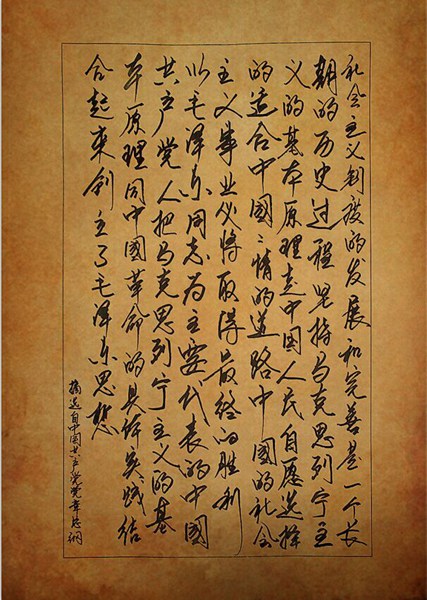 社会主义制度的发展和完善是一个长
期的历史过程坚持马克思列宁主
义的基本原理走中国人民自愿选择
的适合中国国情的道路中国的社会
主义事业必将取得最终的胜利
以毛泽东同志为主要代表的中国
共产党人把马克思列宁主义的基
本原理同中國革命的具体实践结
合起来创立了毛泽东思想
摘选自中国共产党党章总纲